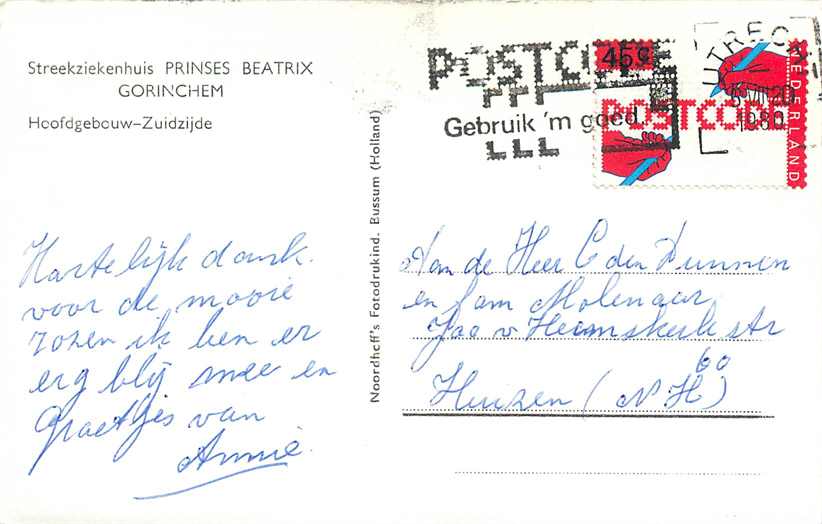 Streekziekenhuis PRINSES BEATRIX
GORINCHEM
Hoofdgebouw-Zuidzijde
Hartelijk dank
voor de mooie
rozen ik ben er
erg blij mee en
Groetjes van
Annie.
Noordhoff's Fotodrukind. Bussum (Holland)
POSTCODE
Gebruik 'm goed.
UTRECHT
1980
45c
POSTCODE
NEDERLAND
Aan de Heer C den Dunnen
en fam Molenaar
Jac v Heemskerkstr
60
Huizen (N H)